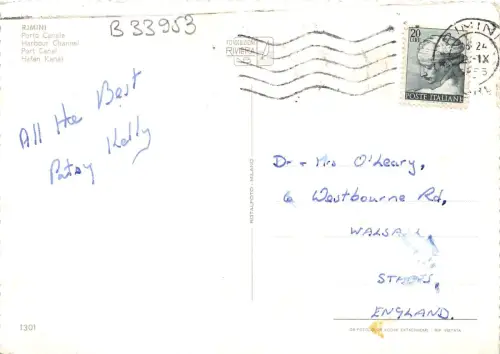 RIMINI
Porto Canale
Harbour Channel
Port Canal
Hafen Kanal
B 33953
RIVIERA
20
POSTE ITALIANE
RIMINI
24
IX
All the Best
Patsy Kelly
Dr + Mrs O'Leary,
6 Westbourne Rd,
WALSALL
STAFFS,
ENGLAND.
ROTALFOTO - MILANO
1301